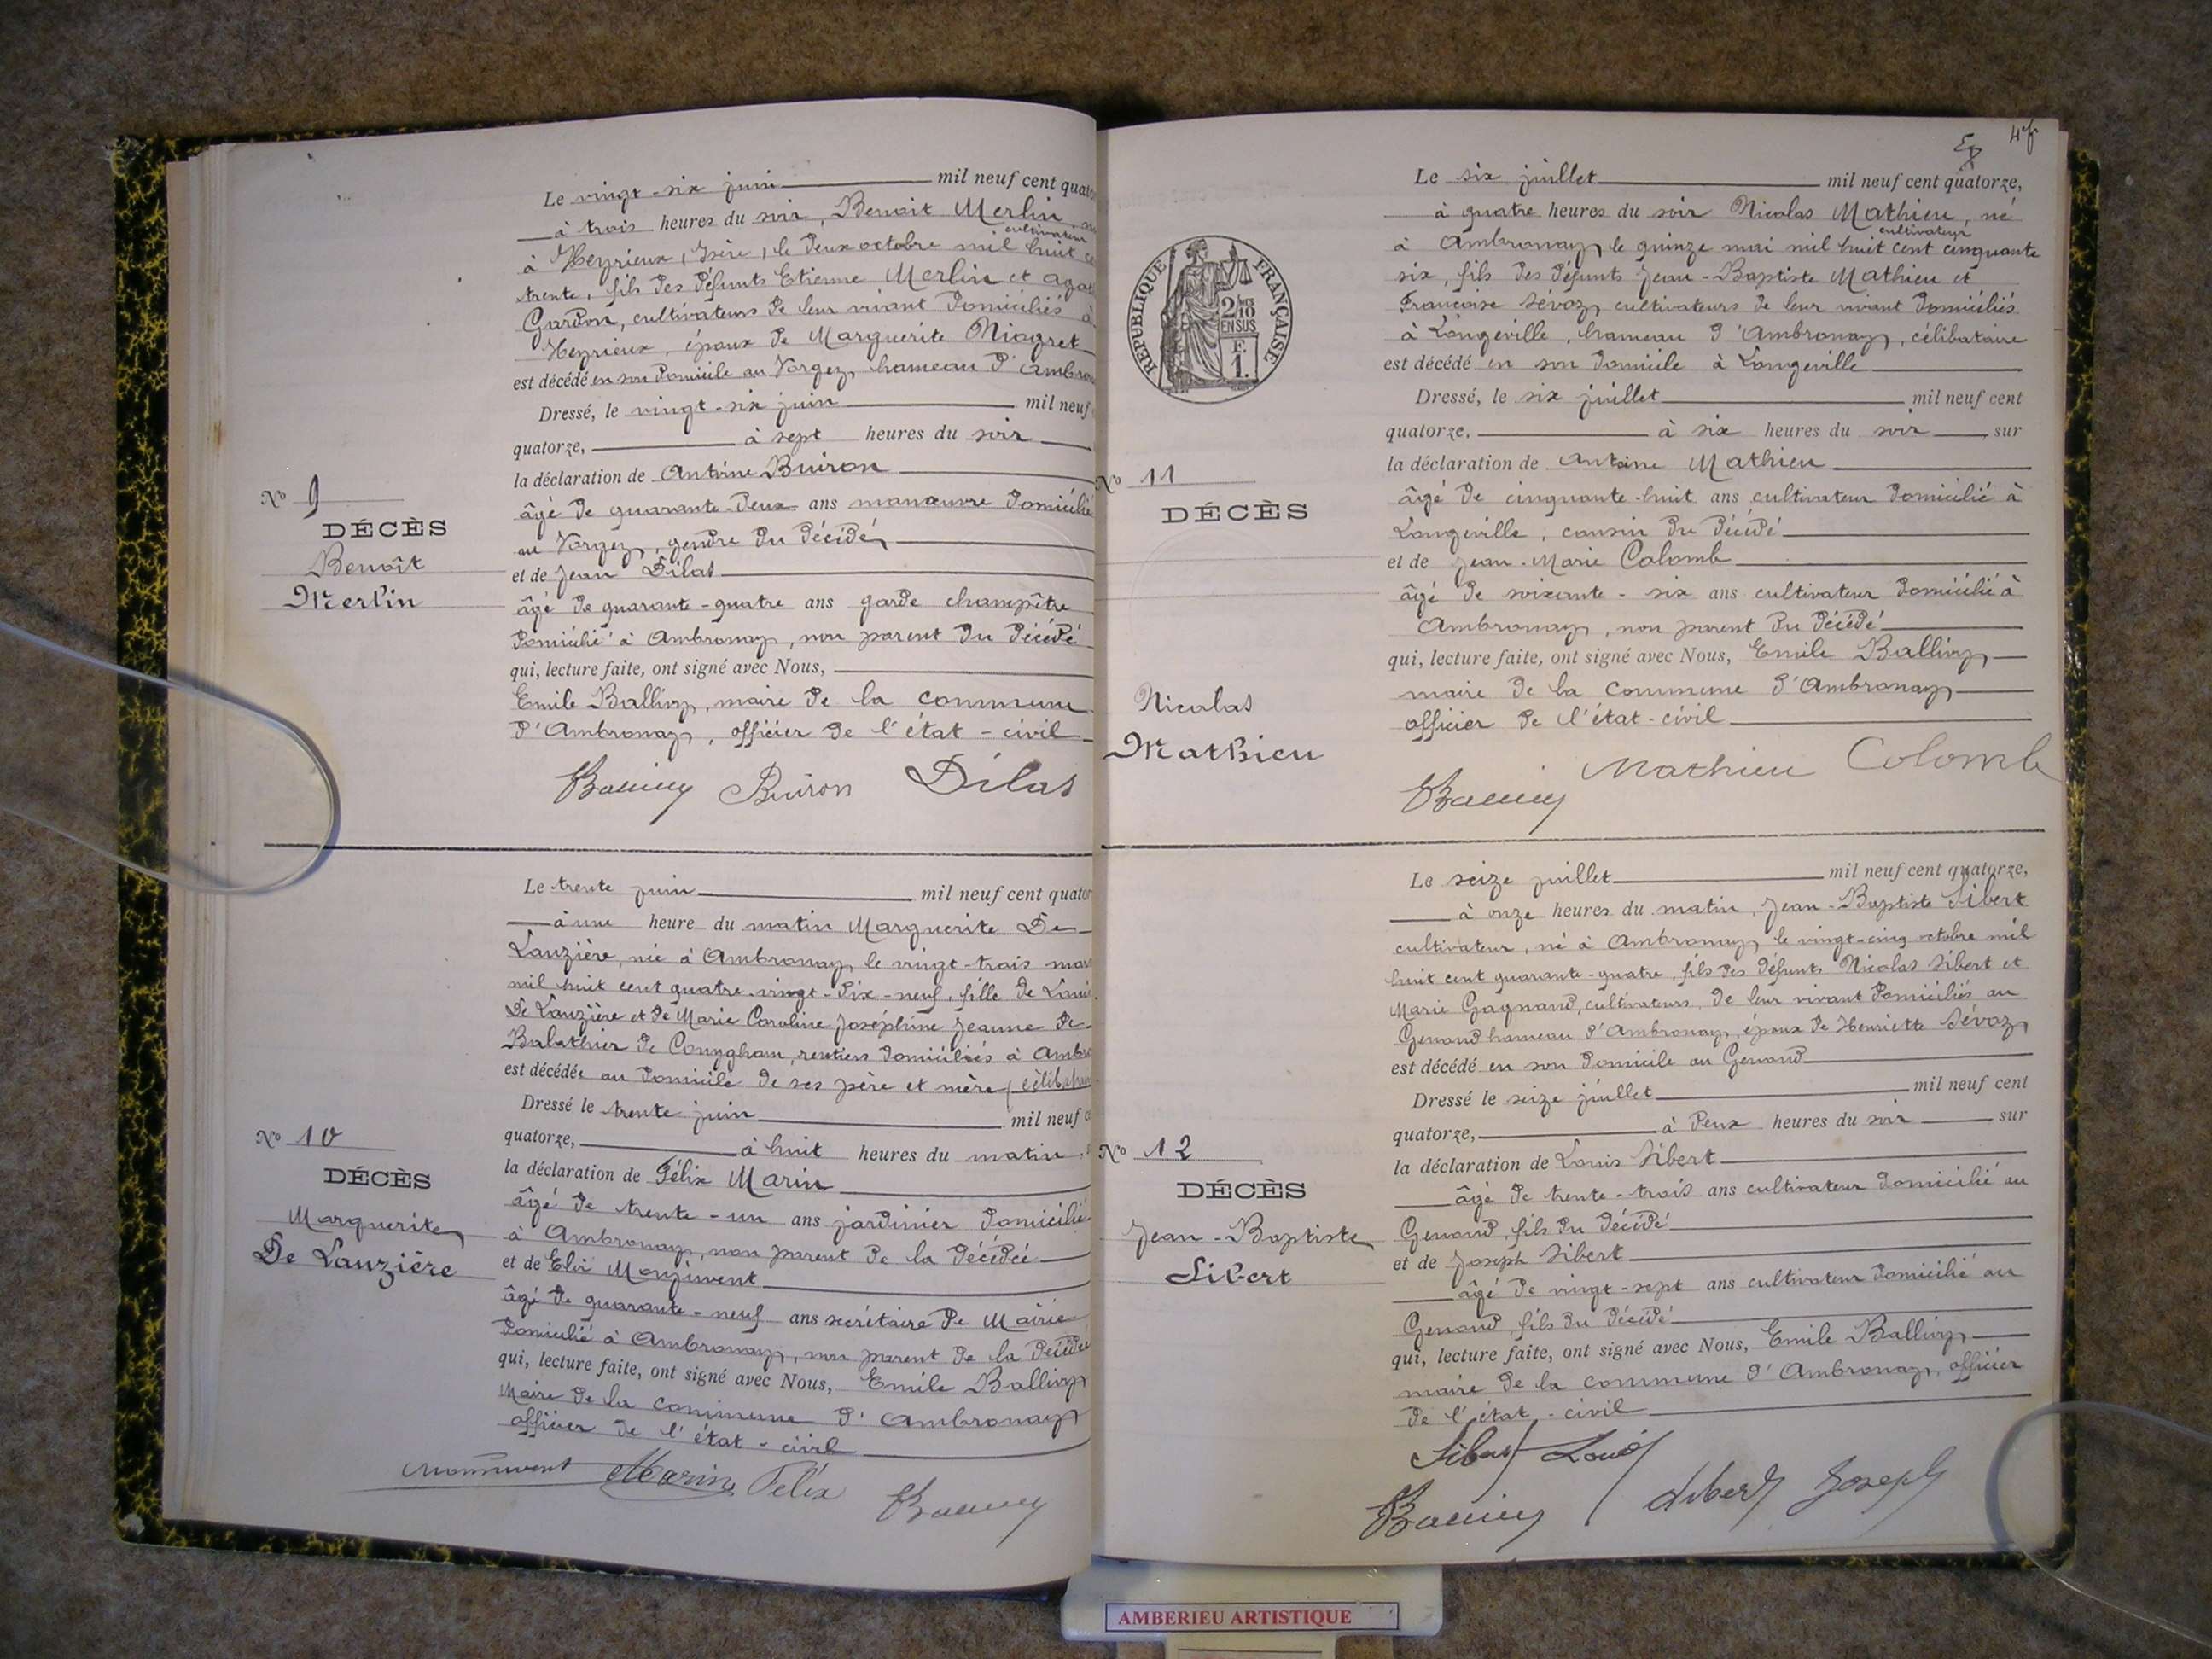 Le vingt-six juin mil neuf cent quato
à trois heures du soir, Benoit Merlin,
cultivateur
à Heyrieux (Isère), le deux octobre mil huit
trente, fils des défunts Etienne Merlin et Aga
Gardon, cultivateurs de leur vivant domiciliés à
Heyrieux, époux de Marguerite Niogret
est décédé en son domicile au Vorgey, hameau d'Ambro
Dressé, le vingt-six juin mil neuf
quatorze, à sept heures du soir
la déclaration de Antoine Buiron
âgé de quarante-deux ans manœuvre domicilié
au Vorgey, gendre du décédé,
et de Jean Dilas
âgé de quarante-quatre ans garde champêtre
domicilié à Ambronay, non parent du décédé
qui, lecture faite, ont signé avec Nous,
Emile Ballivy, maire de la commune
d'Ambronay, officier de l'état-civil
Buiron Dilas
No 9
DÉCÈS
Benoît
Merlin
Le trente juin mil neuf cent quator
à une heure du matin Marguerite De
Lauzière, née à Ambronay le vingt-trois mar
mil huit cent quatre-vingt-dix-neuf, fille de Loui
De Lauzière et de Marie Caroline Joséphine Jeanne de
Balathier de Conygham, rentiers domiciliés à Ambr
est décédée au domicile de ses père et mère,
Dressé le trente juin mil neuf c
quatorze, à huit heures du matin,
la déclaration de Félix Marin
âgé de trente-un ans jardinier domicilié
à Ambronay, non parent de la décédée
et de Eloi
âgé de quarante-neuf ans secrétaire de Mairie
domicilié à Ambronay, non parent de la décédée
qui, lecture faite, ont signé avec Nous, Emile Ballivy
Maire de la commune d'Ambronay
officier de l'état-civil
Marin Félix
No 10
DÉCÈS
Marguerite
De Lauzière
Le six juillet mil neuf cent quatorze,
à quatre heures du soir Nicolas Mathieu, né
cultivateur
à Ambronay le quinze mai mil huit cent cinquante
six, fils des défunts Jean-Baptiste Mathieu et
Françoise Sévoz, cultivateurs de leur vivant domiciliés
à Longeville, hameau d'Ambronay, célibataire
est décédé en son domicile à Longeville
Dressé, le six juillet mil neuf cent
quatorze, à six heures du soir, sur
la déclaration de Antoine Mathieu
âgé de cinquante-huit ans cultivateur domicilié à
Longeville, cousin du décédé
et de Jean-Marie Colomb
âgé de soixante-six ans cultivateur domicilié à
Ambronay, non parent du décédé
qui, lecture faite, ont signé avec Nous, Emile Ballivy,
maire de la commune d'Ambronay
officier de l'état-civil
Mathieu Colomb
RÉPUBLIQUE FRANÇAISE
2/10
EN SUS
F.
1.
No 11
DÉCÈS
Nicolas
Mathieu
Le seize juillet mil neuf cent quatorze,
à onze heures du matin, Jean-Baptiste Sibert
cultivateur, né à Ambronay, le vingt-cinq octobre mil
huit cent quarante-quatre, fils des défunts Nicolas Sibert et
Marie Gagnand, cultivateurs, de leur vivant domiciliés au
Genoud hameau d'Ambronay, époux de Henriette Sévoz,
est décédé en son domicile au Genoud
Dressé le seize juillet mil neuf cent
quatorze, à deux heures du soir sur
la déclaration de Louis Sibert
âgé de trente-trois ans cultivateur domicilié au
Genoud, fils du décédé
et de Joseph Sibert
âgé de vingt-sept ans cultivateur domicilié au
Genoud, fils du décédé
qui, lecture faite, ont signé avec Nous, Emile Ballivy
maire de la commune d'Ambronay, officier
de l'état-civil
Sibert Louis
Sibert Joseph
No 12
DÉCÈS
Jean-Baptiste
Sibert
AMBERIEU ARTISTIQUE